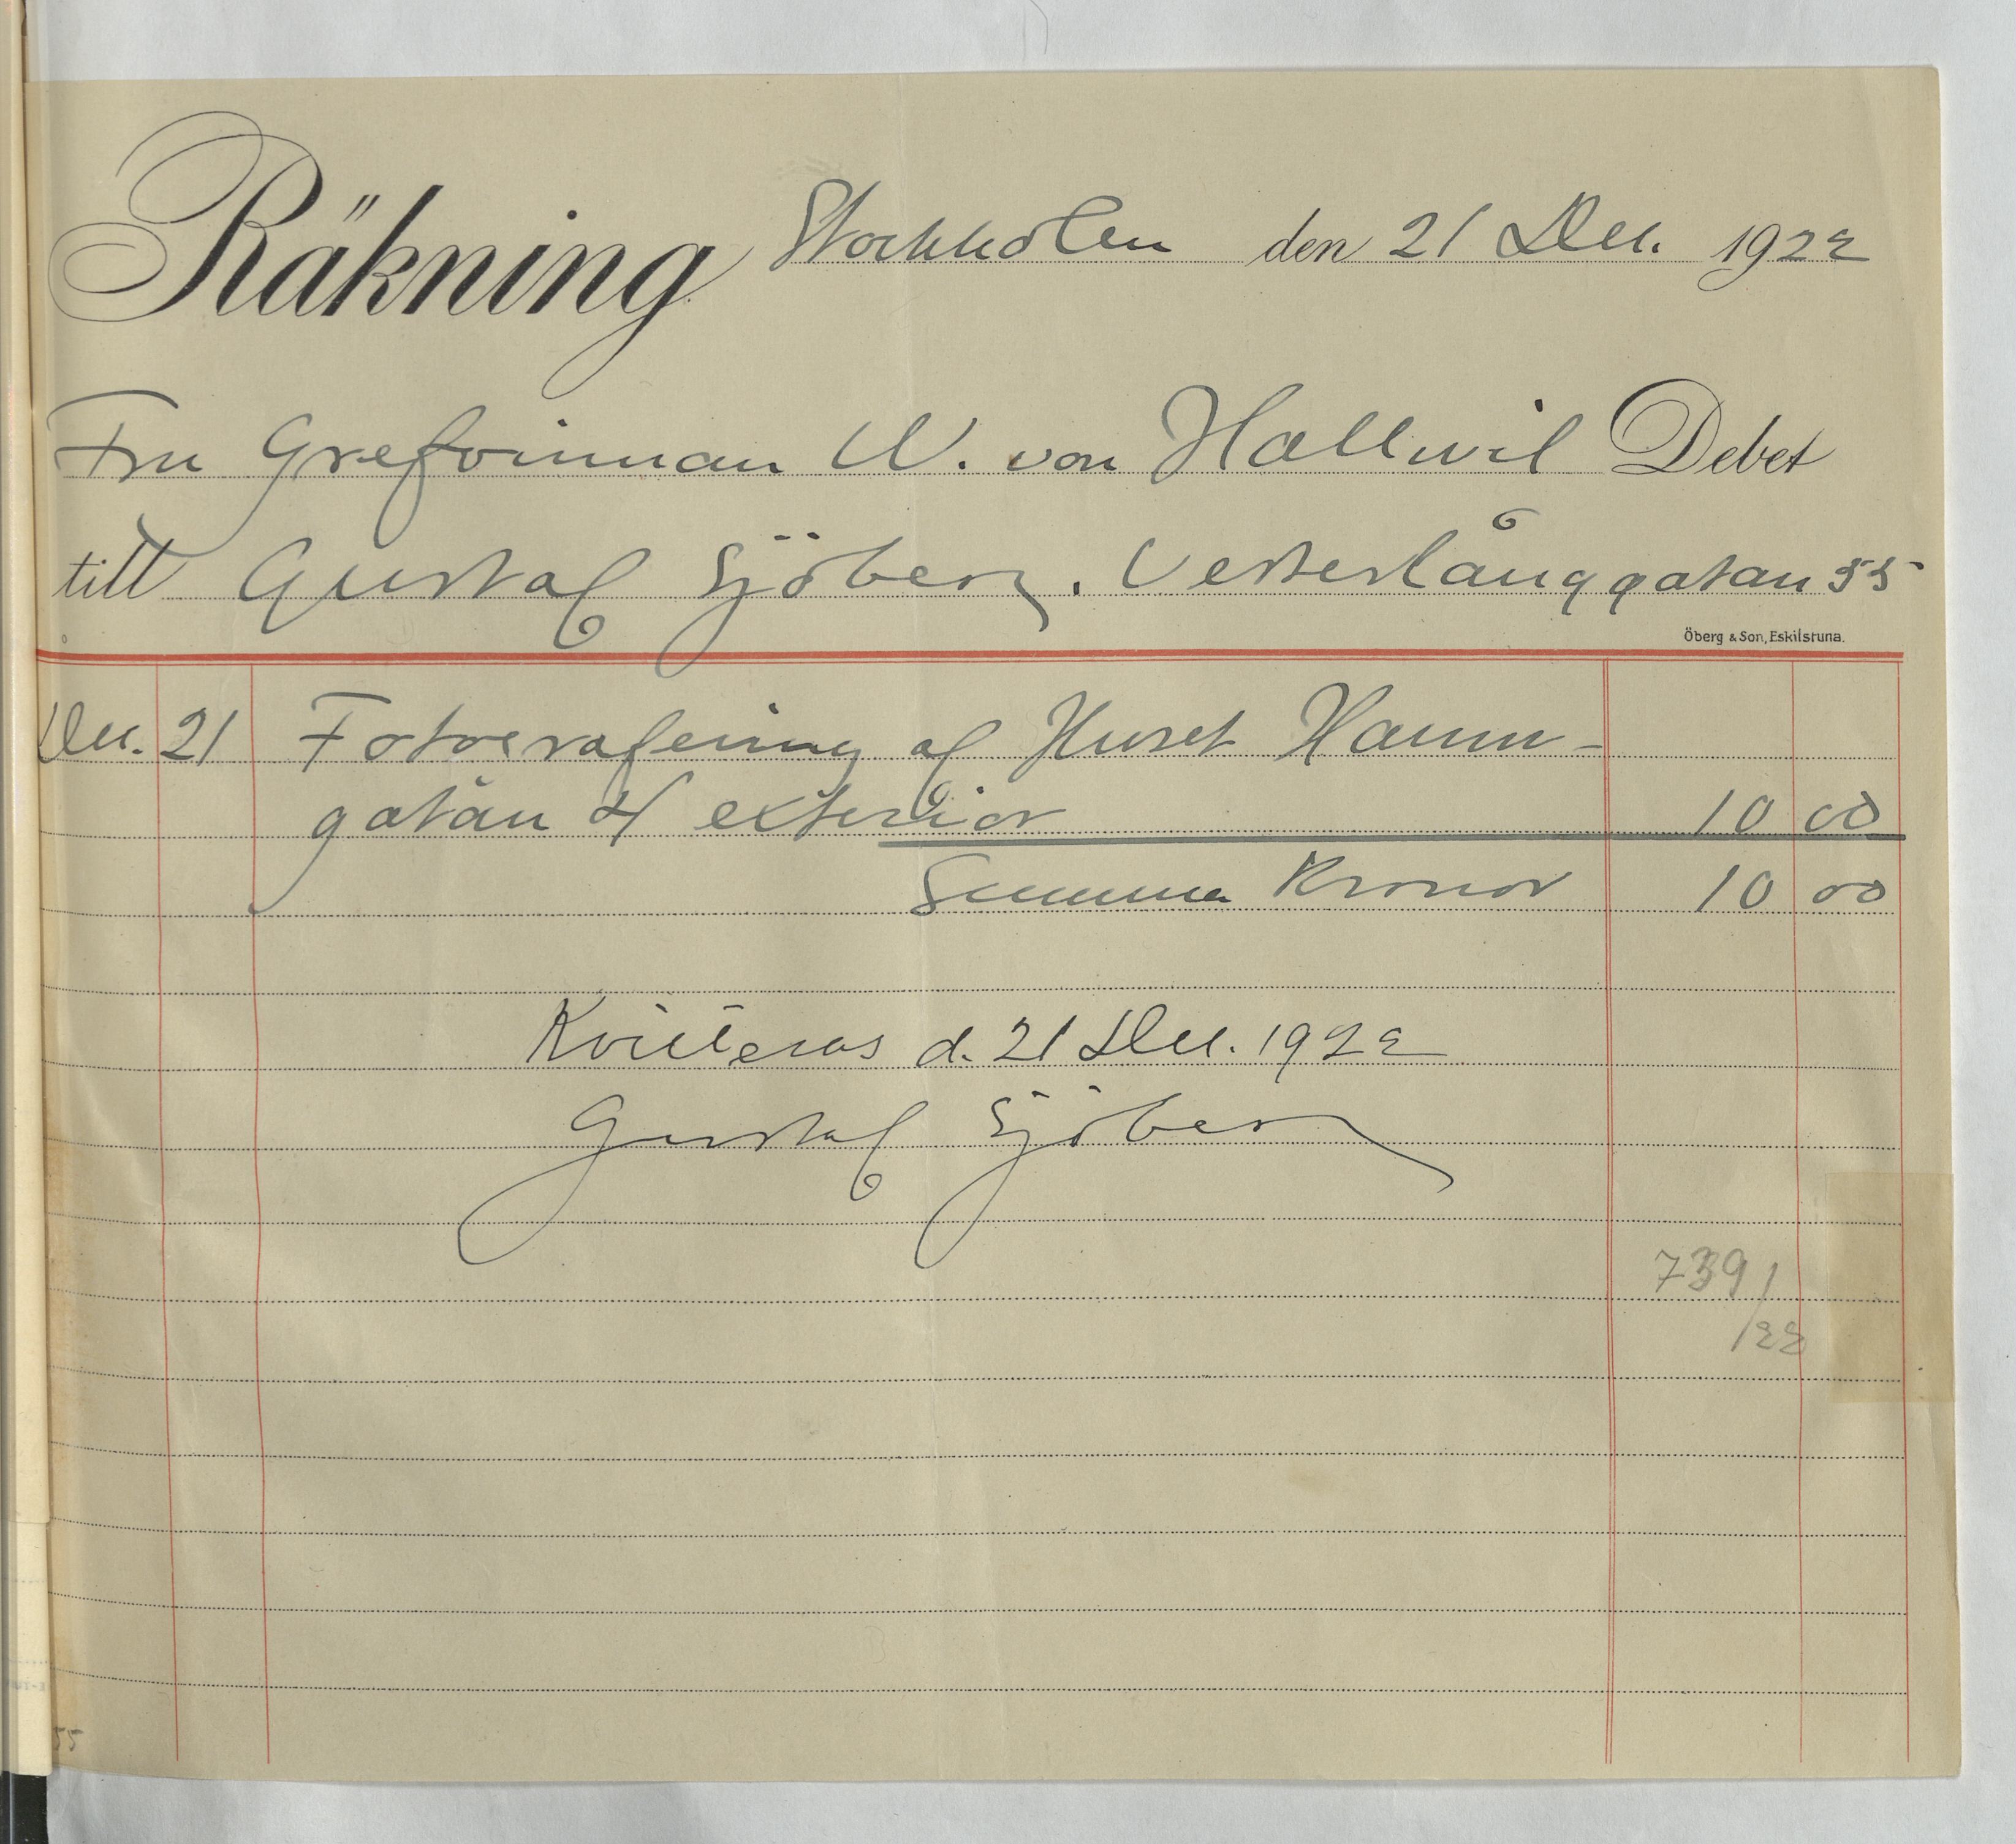 Räkning Stockholm den 21 Dec. 1922
Fru Grefvinnan W. von Hallwil Debet
till Gustaf Sjöberg. Vesterlånggatan 55
Öberg & Son, Eskilstuna.
Dec. 21 Fotografering af Huset Hamn-
gatan 4 exteriör 10 00
Summa Kronor 10 00
Kvitteras d. 21 Dec. 1922
Gustaf Sjöberg
739/
/22
55